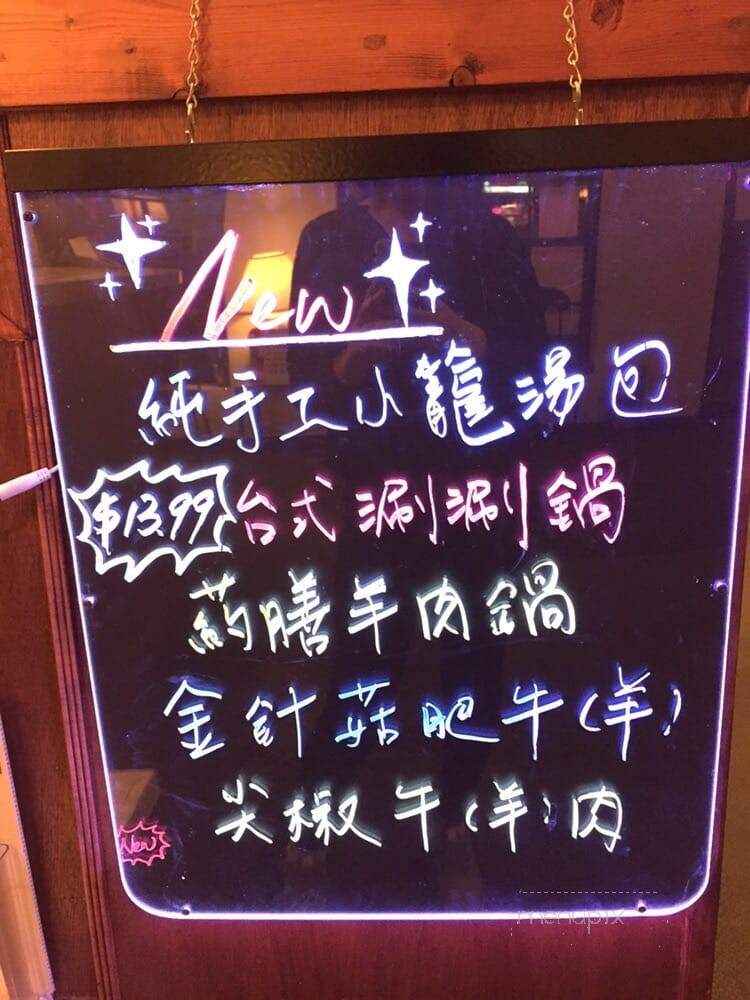 New
純手工小籠湯包
$13.99 台式涮涮鍋
葯膳羊肉鍋
金針菇肥牛(羊)
尖椒牛(羊)肉
New
menupix